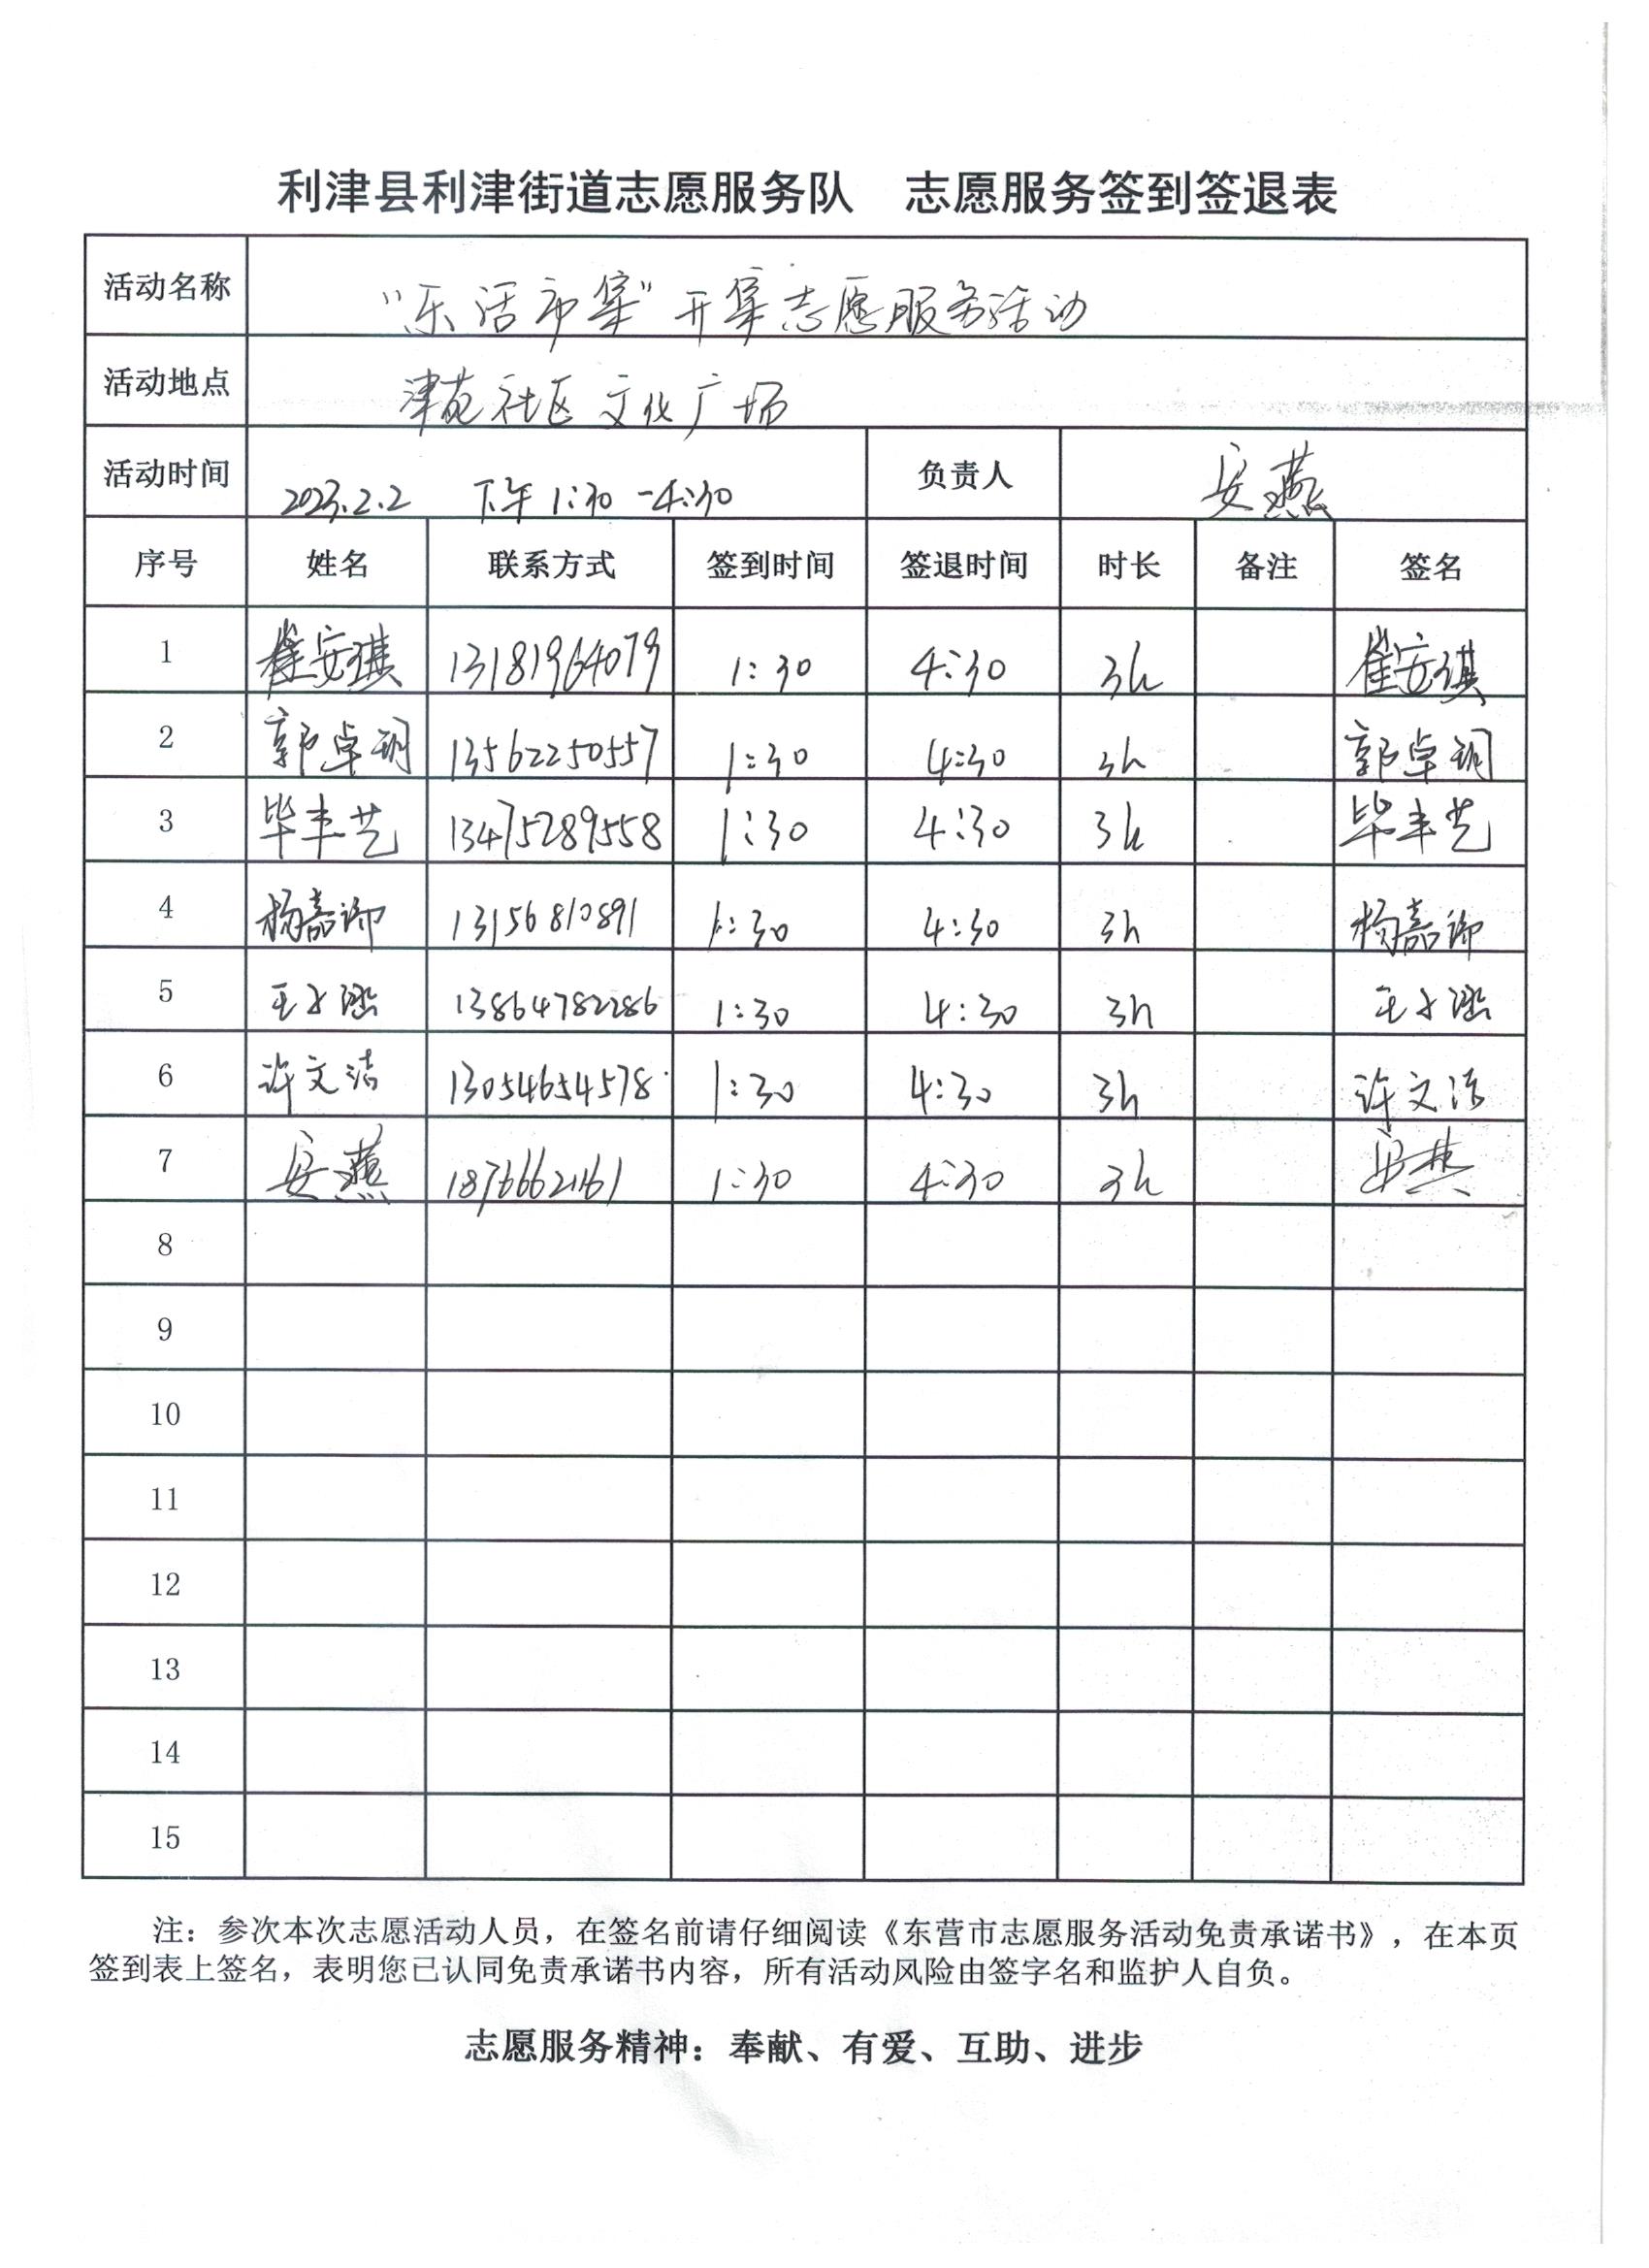 利津县利津街道志愿服务队 志愿服务签到签退表
活动名称 “乐活市集”开集志愿服务活动
活动地点 津苑社区文化广场
活动时间 2023.2.2 下午 1:30-4:30 负责人 安燕
序号 姓名 联系方式 签到时间 签退时间 时长 备注 签名
1 崔安琪 13181964079 1:30 4:30 3h 崔安琪
2 郭卓玥 13562250557 1:30 4:30 3h 郭卓玥
3 毕丰艺 13475289558 1:30 4:30 3h 毕丰艺
4 杨嘉 13156810891 1:30 4:30 3h 杨嘉
5 王子涵 13864782286 1:30 4:30 3h 王子涵
6 许文洁 13054654578 1:30 4:30 3h 许文洁
7 安燕 18766621161 1:30 4:30 3h 安燕
8
9
10
11
12
13
14
15
注：参次本次志愿活动人员，在签名前请仔细阅读《东营市志愿服务活动免责承诺书》，在本页
签到表上签名，表明您已认同免责承诺书内容，所有活动风险由签字名和监护人自负。
志愿服务精神：奉献、有爱、互助、进步